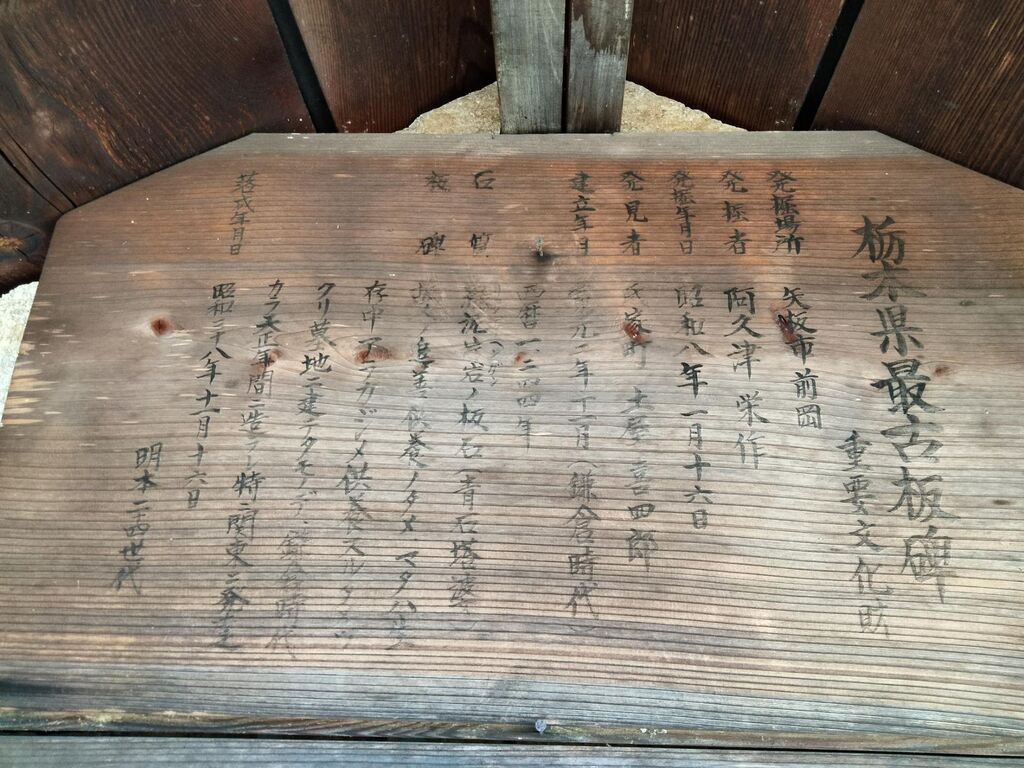 栃木県最古板碑
重要文化財
発掘場所 矢板市前岡
発掘者 阿久津栄作
発掘年月日 昭和八年一月十六日
発見者 氏家町 土屋喜四郎
建立年日 二年十一月(鎌倉時代)
西暦一二四四年
石質 岩ノ板石(青石塔婆)
板碑 追善供養ノタメ マタハ生
存中アラカジメ供養スルタメツ
クリ墓地ニ建テタモノデ、鎌倉時代
カラ天正年間ニ造ラレ特ニ関東ニ発達
落成年月日 昭和三十八年十一月十六日
明本二十四世代